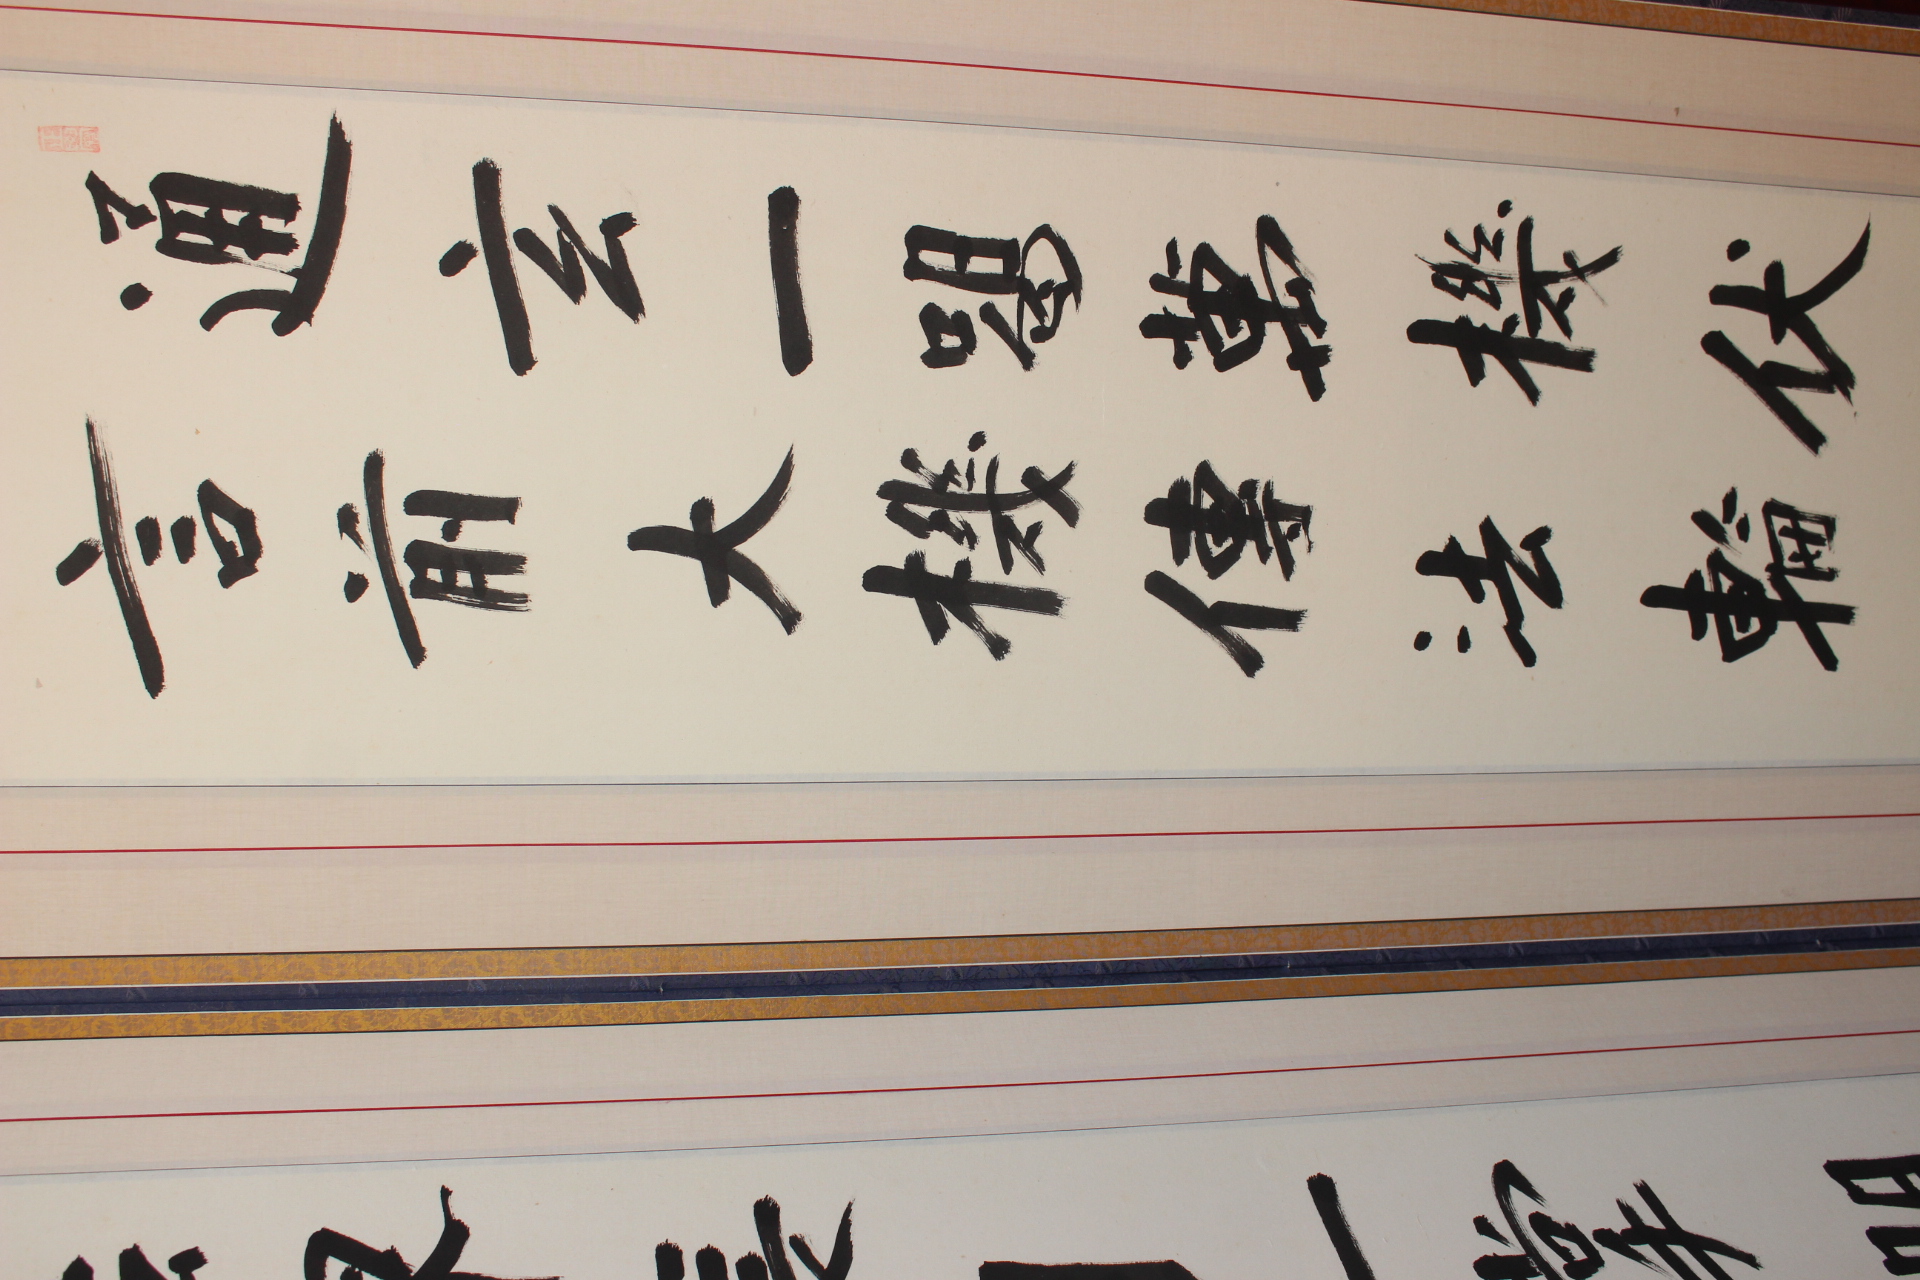 通玄一喝萬機伏
言前大機傳法輪
界長
一掌